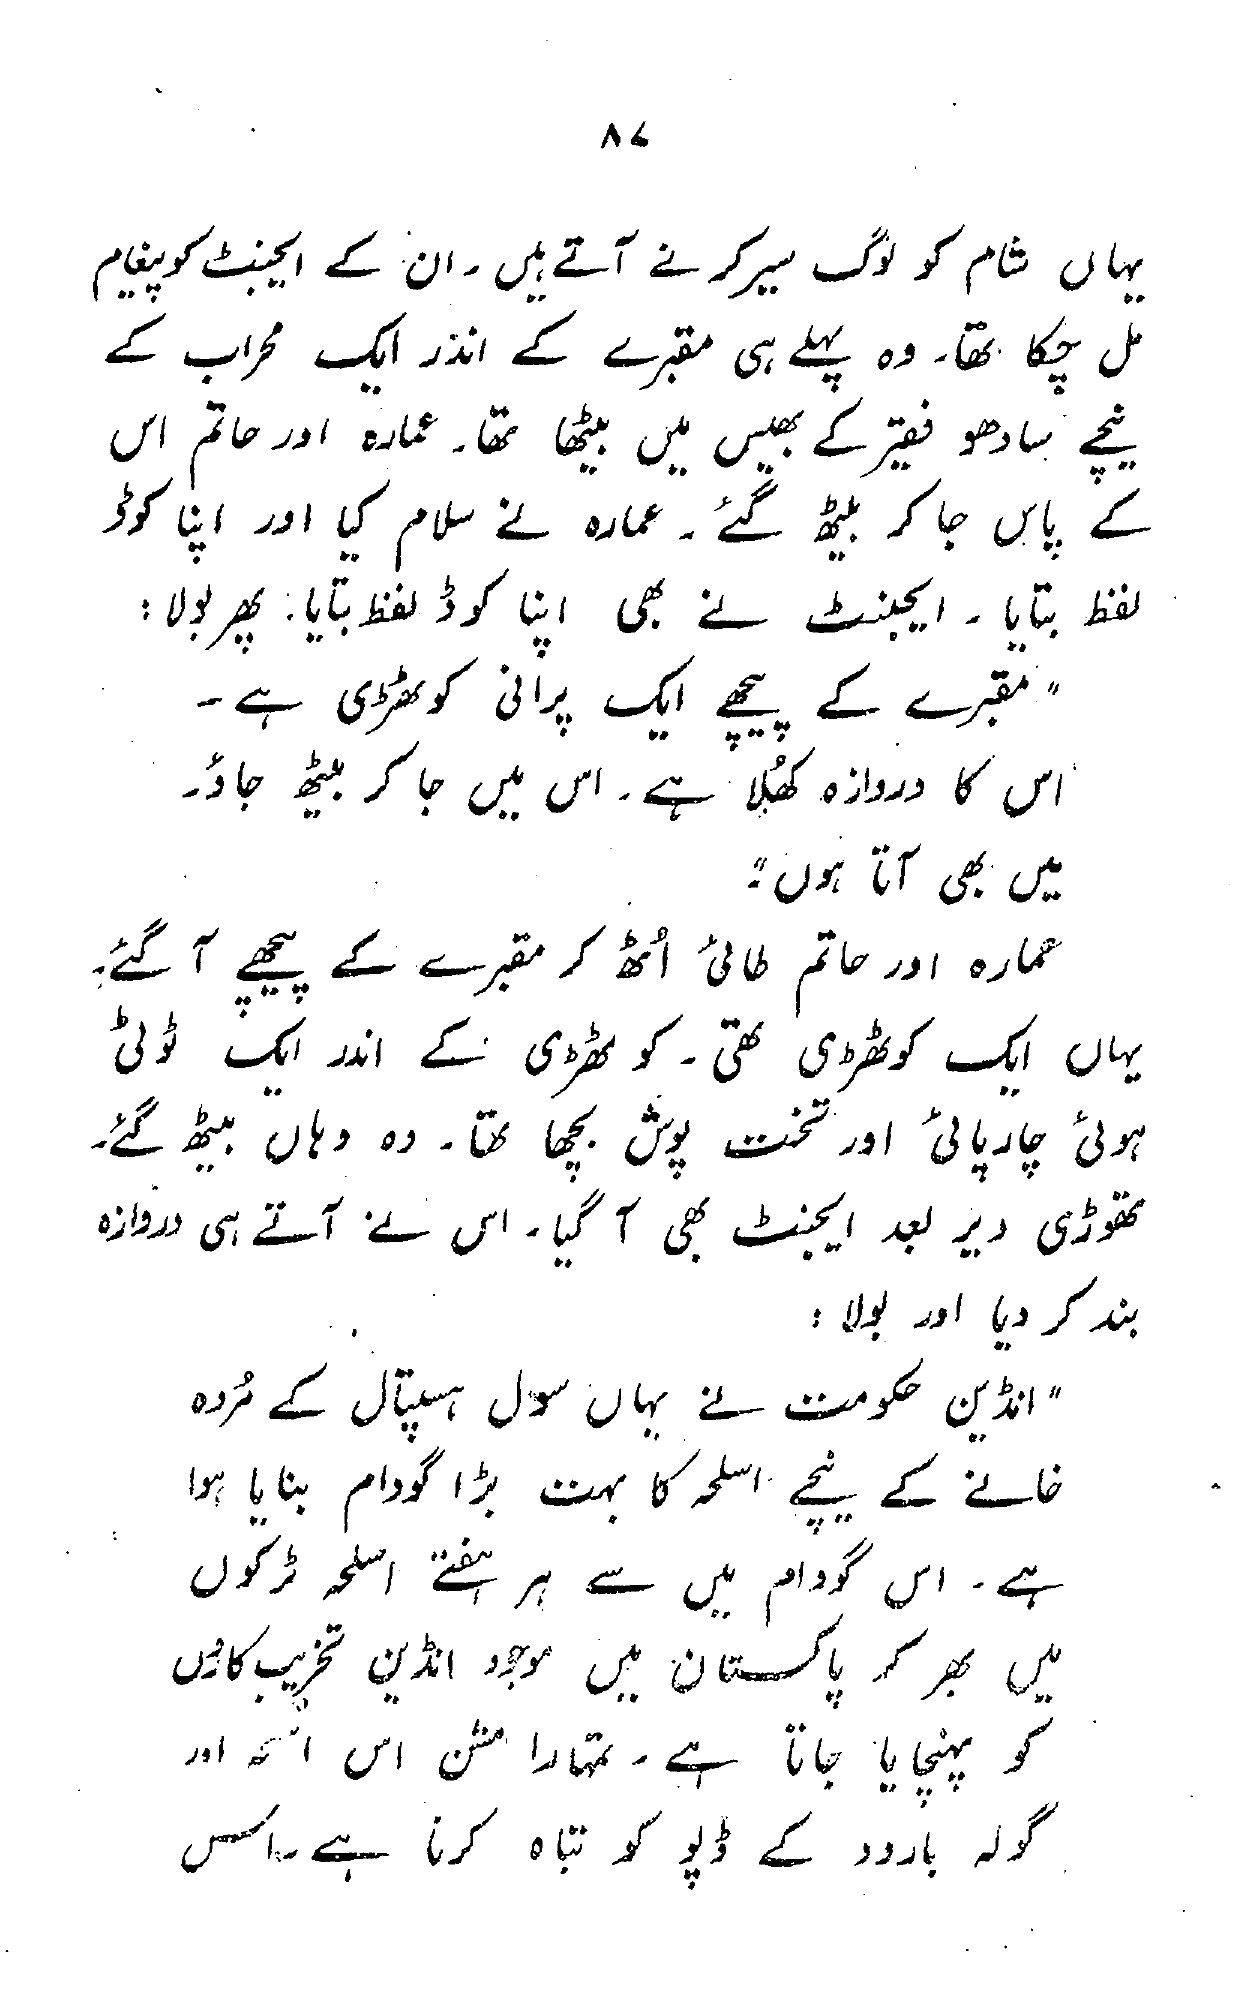 ۸۷
یہاں شام کو لوگ سیر کرنے آتے ہیں۔ ان کے ایجنٹ کو پیغام
مل چکا تھا۔ وہ پہلے ہی مقبرے کے اندر ایک محراب کے
نیچے سادھو فقیر کے بھیس میں بیٹھا تھا۔ عمارہ اور حاتم اس
کے پاس جا کر بیٹھ گئے۔ عمارہ نے سلام کیا اور اپنا کوڈ
لفظ بتایا۔ ایجنٹ نے بھی اپنا کوڈ لفظ بتایا۔ پھر بولا:
"مقبرے کے پیچھے ایک پرانی کوٹھڑی ہے۔
اس کا دروازہ کھُلا ہے۔ اس میں جا کر بیٹھ جاؤ۔
میں بھی آتا ہوں۔"
عمارہ اور حاتم طائی اُٹھ کر مقبرے کے پیچھے آ گئے۔
یہاں ایک کوٹھڑی تھی۔ کوٹھڑی کے اندر ایک ٹوٹی
ہوئی چارپائی اور تخت پوش بچھا تھا۔ وہ وہاں بیٹھ گئے۔
تھوڑی دیر بعد ایجنٹ بھی آ گیا۔ اس نے آتے ہی دروازہ
بند کر دیا اور بولا:
"انڈین حکومت نے یہاں سول ہسپتال کے مُردہ
خانے کے نیچے اسلحہ کا بہت بڑا گودام بنایا ہوا
ہے۔ اس گودام میں سے ہر ہفتے اسلحہ ٹرکوں
میں بھر کر پاکستان میں موجود انڈین تخریب کاروں
کو پہنچایا جاتا ہے۔ تمہارا مشن اس اسلحہ اور
گولہ بارود کے ڈپو کو تباہ کرنا ہے۔ اس